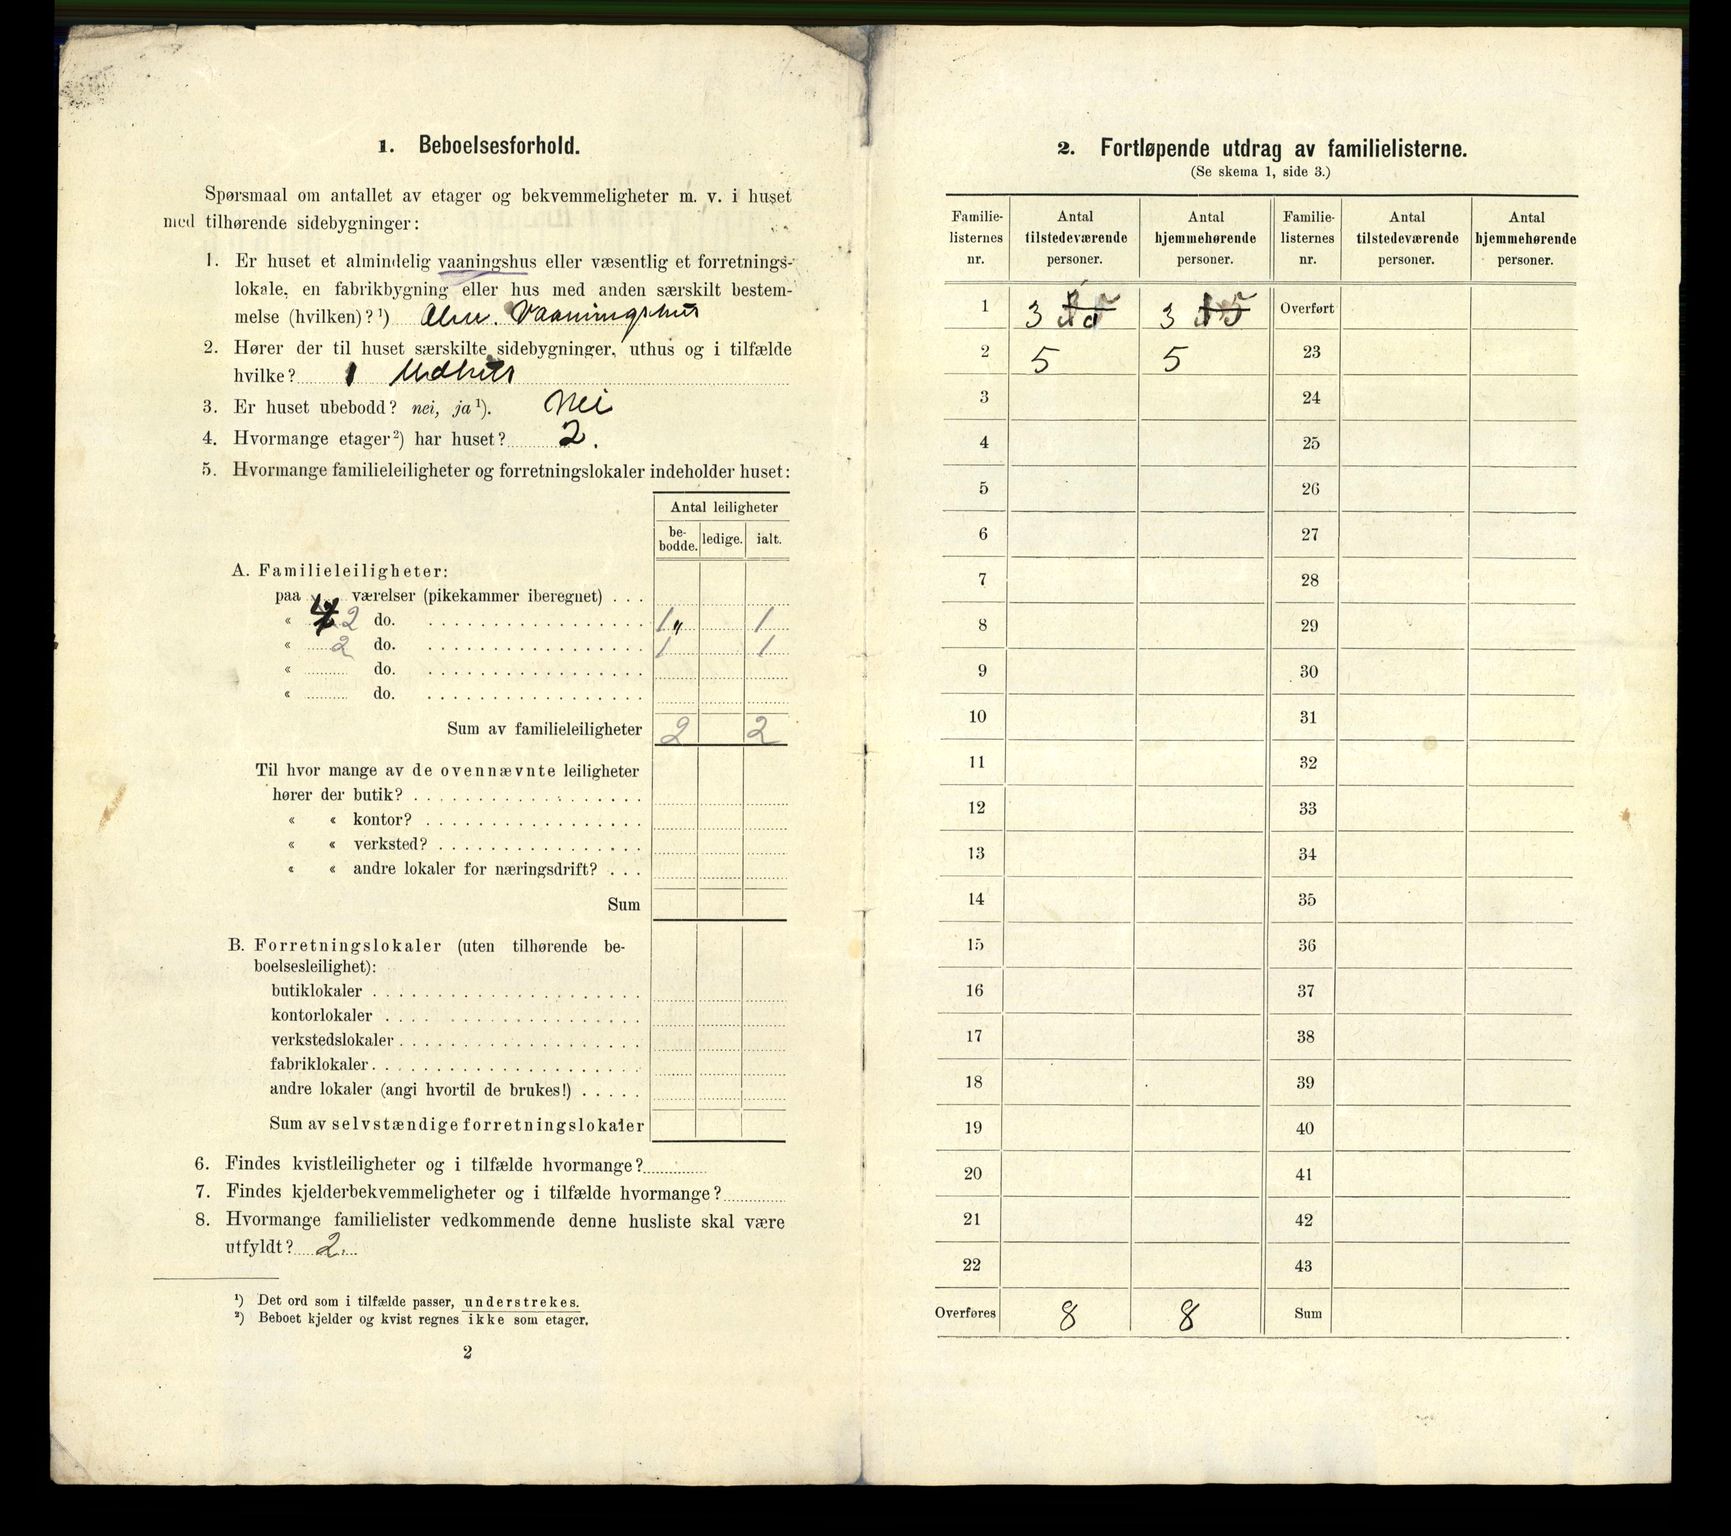 1. Beboelsesforhold.
Spørsmaal om antallet av etager og bekvemmeligheter m. v. i huset
med tilhørende sidebygninger:
1. Er huset et almindelig vaaningshus eller væsentlig et forretnings-
lokale, en fabrikbygning eller hus med anden særskilt bestem-
melse (hvilken)?¹) Alm. Vaaningshus
2. Hører der til huset særskilte sidebygninger, uthus og i tilfælde
hvilke? 1 Udhus
3. Er huset ubebodd? nei, ja¹). Nei
4. Hvormange etager²) har huset? 2.
5. Hvormange familieleiligheter og forretningslokaler indeholder huset:
Antal leiligheter
be-
bodde. ledige. ialt.
A. Familieleiligheter:
paa værelser (pikekammer iberegnet) . . .
« 2 do. 1 " 1
« 2 do. 1 1
« do.
« do.
Sum av familieleiligheter 2 2
Til hvor mange av de ovennævnte leiligheter
hører der butik?
« « kontor?
« « verksted?
« « andre lokaler for næringsdrift? . . .
Sum
B. Forretningslokaler (uten tilhørende be-
boelsesleilighet):
butiklokaler
kontorlokaler
verkstedslokaler
fabriklokaler
andre lokaler (angi hvortil de brukes!) . . . . .
Sum av selvstændige forretningslokaler
6. Findes kvistleiligheter og i tilfælde hvormange?
7. Findes kjelderbekvemmeligheter og i tilfælde hvormange?
8. Hvormange familielister vedkommende denne husliste skal være
utfyldt? 2.
¹) Det ord som i tilfælde passer, understrekes.
²) Beboet kjelder og kvist regnes ikke som etager.
2
2. Fortløpende utdrag av familielisterne.
(Se skema 1, side 3.)
Familie- Antal Antal Familie- Antal Antal
listernes tilstedeværende hjemmehørende listernes tilstedeværende hjemmehørende
nr. personer. personer. nr. personer. personer.
1 3 3 Overført
2 5 5 23
3 24
4 25
5 26
6 27
7 28
8 29
9 30
10 31
11 32
12 33
13 34
14 35
15 36
16 37
17 38
18 39
19 40
20 41
21 42
22 43
Overføres 8 8 Sum